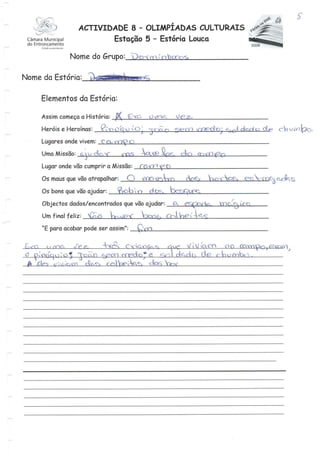 5
ACTIVIDADE 8 - OLIMPÍADAS CULTURAIS
Estação 5 - Estória Louca
Câmara Municipal
do Entroncamento
2009
Nome do Grupo:
Nome da Estória:
Elementos da Estória:
Assim começa a História: Era uma vez
Heróis e Heroínas: Pinóquio; João sem medo; soldado de chumbo
Lugares onde vivem: campo
Uma Missão: ajudar nas tarefas do campo
Lugar onde vão cumprir a Missão: campo
Os maus que vão atrapalhar: O monstro das hortas estragadas
Os bons que vão ajudar: Robin dos bosques
Objectos dados/encontrados que vão ajudar: a espada mágica
Um final feliz: Vão haver boas colheitas
"E para acabar pode ser assim": Fim
Era uma vez três crianças que viviam no campo, eram,
o pinóquio, João sem medo, e soldado de chumbo.
eles viviam das colheitas das hor